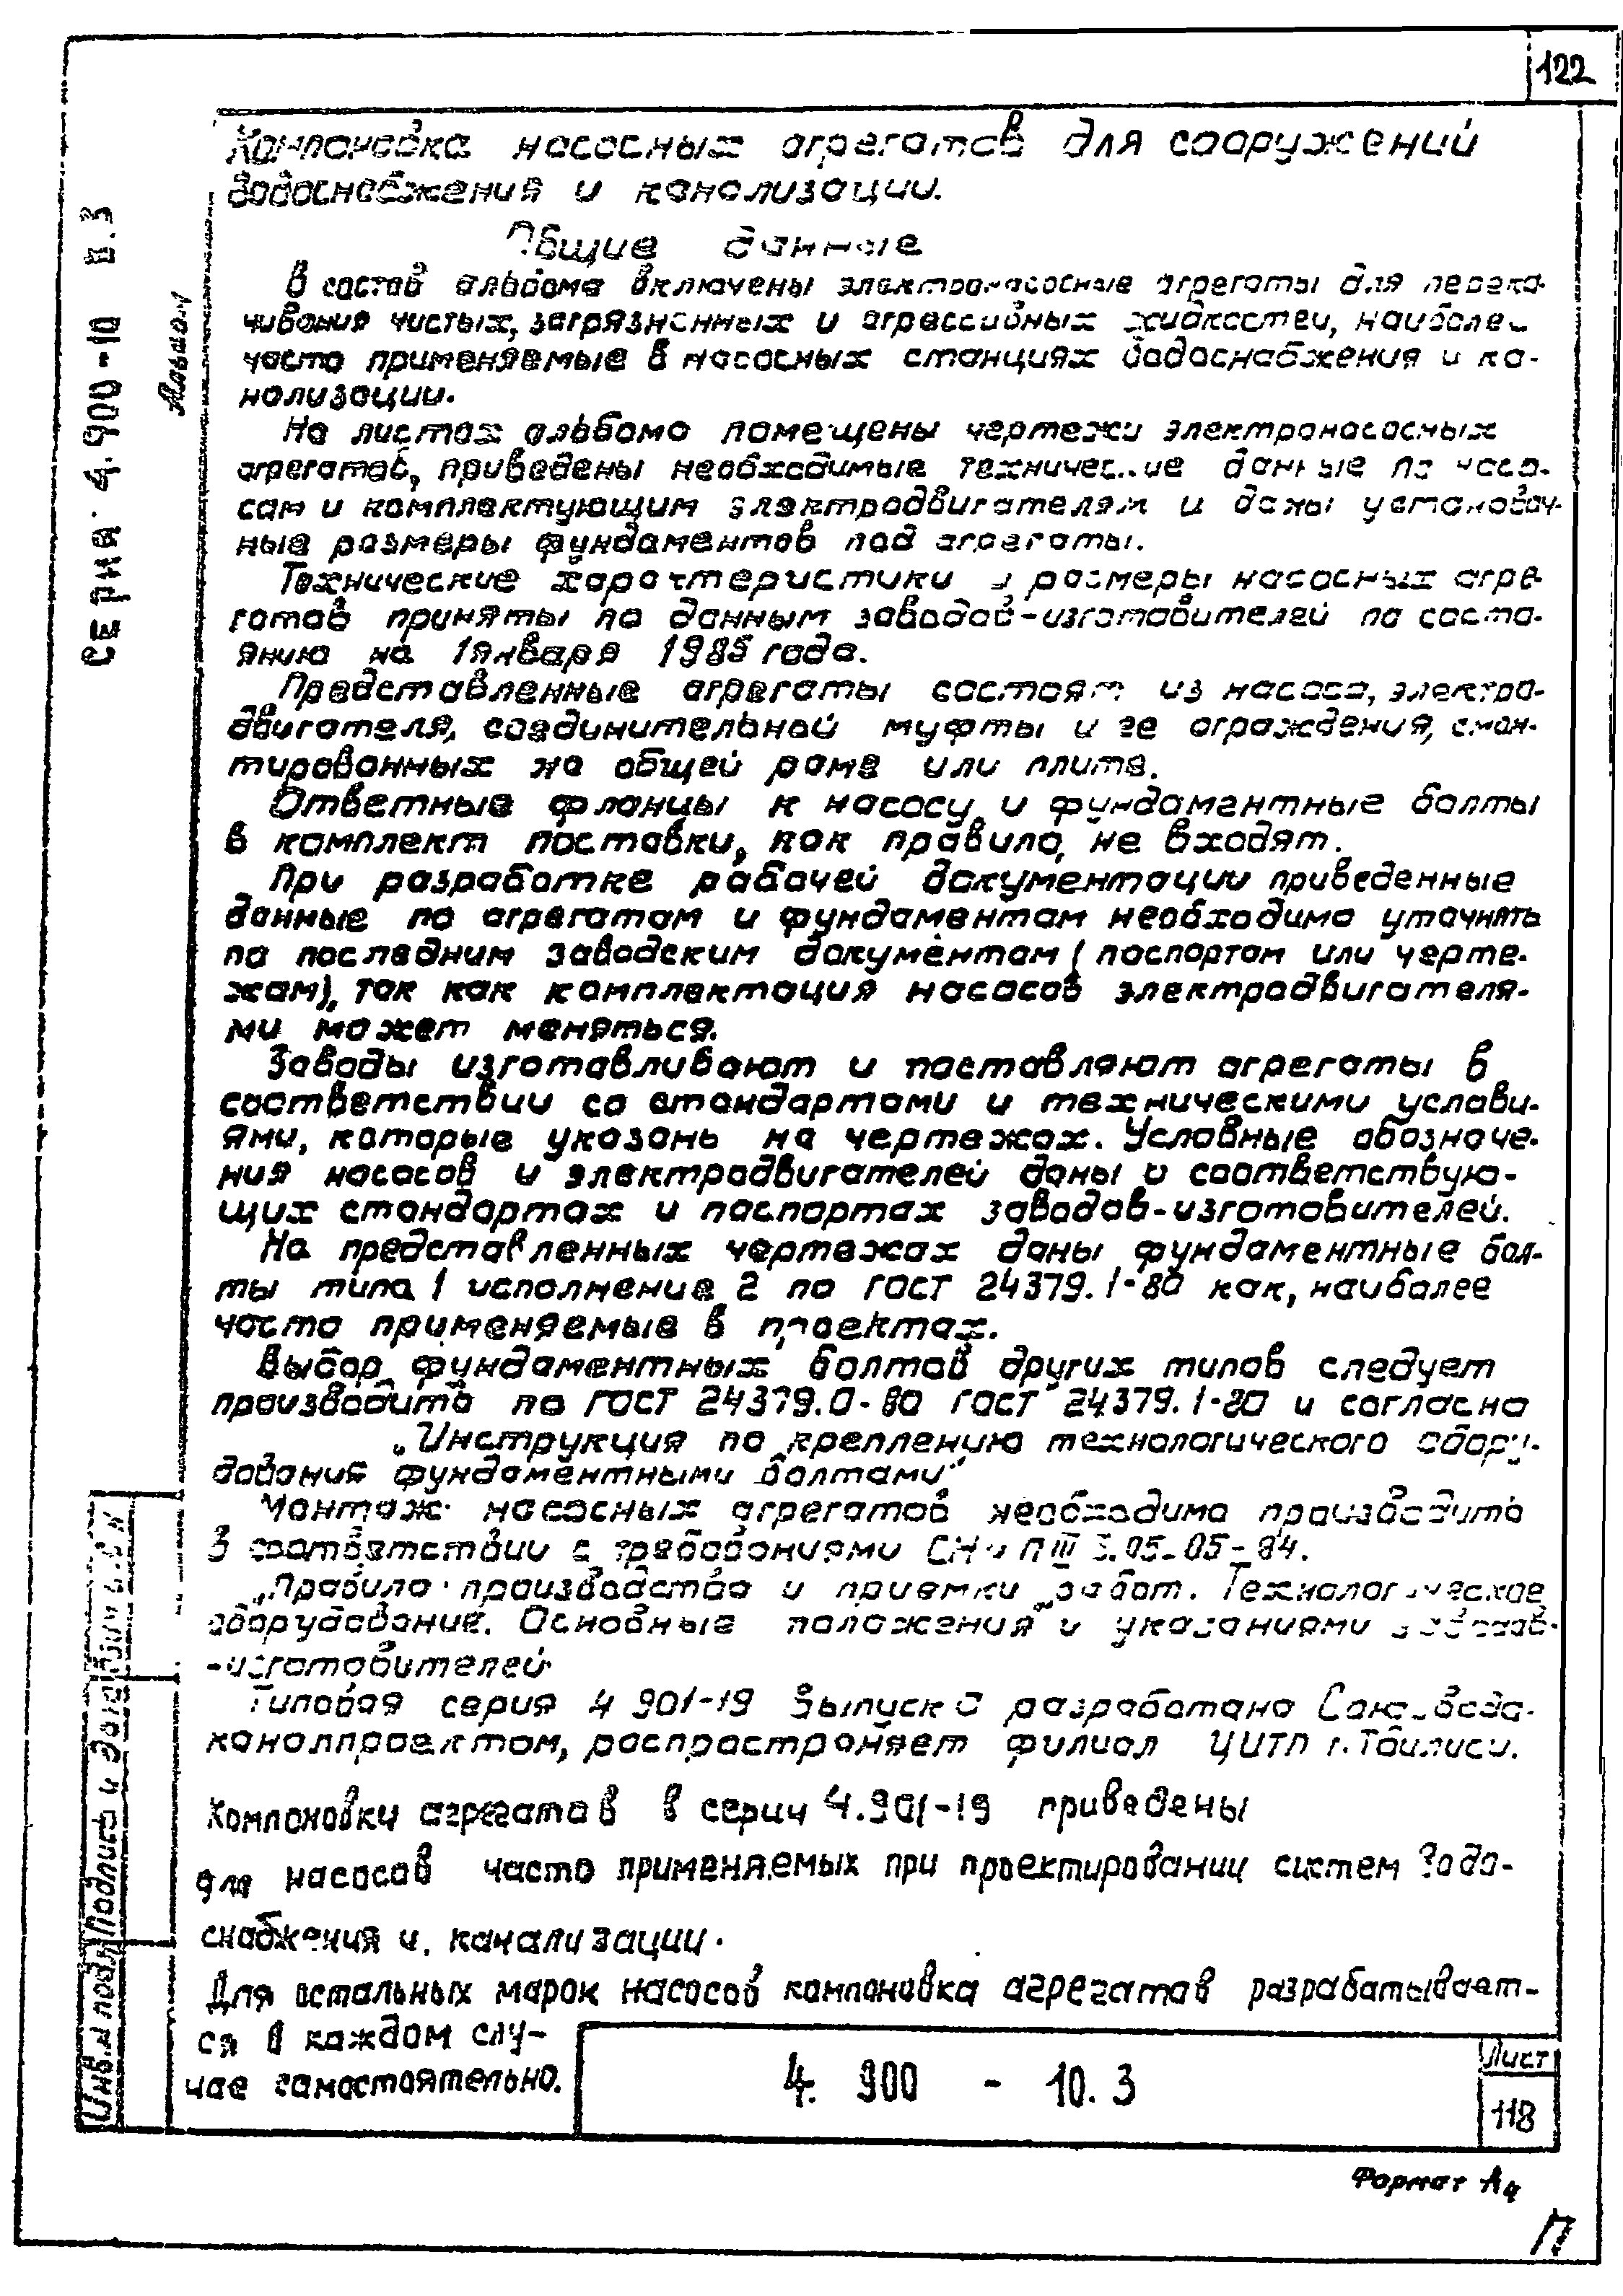 122
Компоновка насосных агрегатов для сооружений
водоснабжения и канализации.
Общие данные
В состав альбома включены электронасосные агрегаты для перека-
чивания чистых, загрязненных и агрессивных жидкостей, наиболее
часто применяемые в насосных станциях водоснабжения и ка-
нализации.
На листах альбома помещены чертежи электронасосных
агрегатов, приведены необходимые технические данные по насо-
сам и комплектующим электродвигателям и даны установоч-
ные размеры фундаментов под агрегаты.
Технические характеристики и размеры насосных агре-
гатов приняты по данным заводов-изготовителей по состо-
янию на 1 января 1985 года.
Представленные агрегаты состоят из насоса, электро-
двигателя, соединительной муфты и ее ограждения, смон-
тированных на общей раме или плите.
Ответные фланцы к насосу и фундаментные болты
в комплект поставки, как правило, не входят.
При разработке рабочей документации приведенные
данные по агрегатам и фундаментам необходимо уточнять
по последним заводским документам (паспортам или черте-
жам), так как комплектация насосов электродвигателя-
ми может меняться.
Заводы изготавливают и поставляют агрегаты в
соответствии со стандартами и техническими услови-
ями, которые указаны на чертежах. Условные обозначе-
ния насосов и электродвигателей даны в соответствую-
щих стандартах и паспортах заводов-изготовителей.
На представленных чертежах даны фундаментные бол-
ты типа 1 исполнение 2 по ГОСТ 24379.1-80 как, наиболее
часто применяемые в проектах.
Выбор фундаментных болтов других типов следует
производить по ГОСТ 24379.0-80 ГОСТ 24379.1-80 и согласно
„Инструкция по креплению технологического обору-
дования фундаментными болтами"
Монтаж насосных агрегатов необходимо производить
в соответствии с требованиями СНиП III 3.05.05-84.
„Правила производства и приемки работ. Технологическое
оборудование. Основные положения и указаниями заводов-
-изготовителей
Типовая серия 4 901-19 Выпуск разработана Союзводо-
каналпроектом, распространяет филиал ЦИТП г. Тбилиси.
Компоновки агрегатов в серии 4.901-19 приведены
для насосов часто применяемых при проектировании систем водо-
снабжения и канализации.
Для остальных марок насосов компоновка агрегатов разрабатывает-
ся в каждом слу-
чае самостоятельно.
4.900 - 10.3
Лист
118
Формат А4
П
Серия 4.900-10 в.3
Альбом
Инв. N подл
Подпись и дата